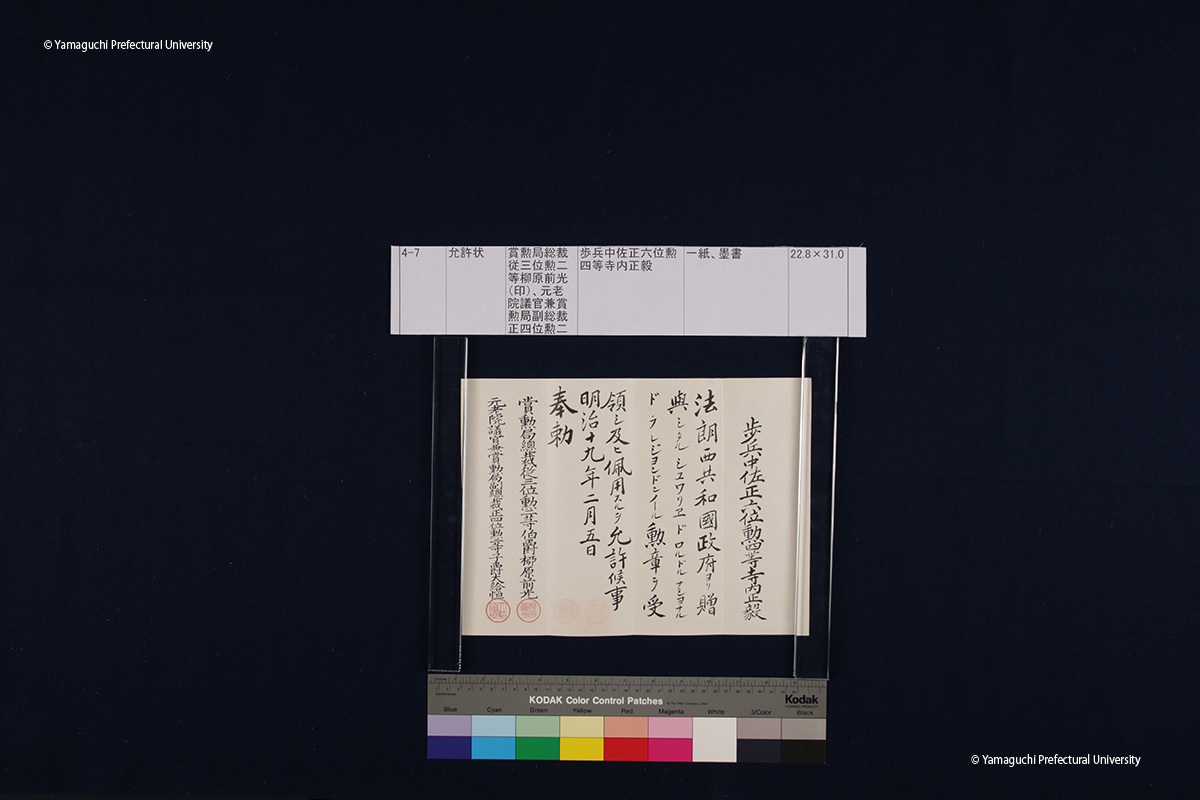 © Yamaguchi Prefectural University
4-7
允許状
賞勲局総裁
従三位勲二
等柳原前光
(印)、元老
院議官兼賞
勲局副総裁
正四位勲二
歩兵中佐正六位勲
四等寺内正毅
一紙、墨書
22.8×31.0
歩兵中佐正六位勲四等寺内正毅
法朗西共和國政府ヨリ贈
與シタル シユワリヱ ド ロルドル ナシヨナル
ド ラ レジヨンドノール勲章ヲ受
領シ及ヒ佩用スルヲ允許候事
明治十九年二月五日
奉勅
賞勲局總裁從三位勲二等伯爵柳原前光
元老院議官兼賞勲局副總裁正四位勲二等子爵大給恒
KODAK Color Control Patches
Kodak
Blue
Cyan
Green
Yellow
Red
Magenta
White
3/Color
Black
© Yamaguchi Prefectural University